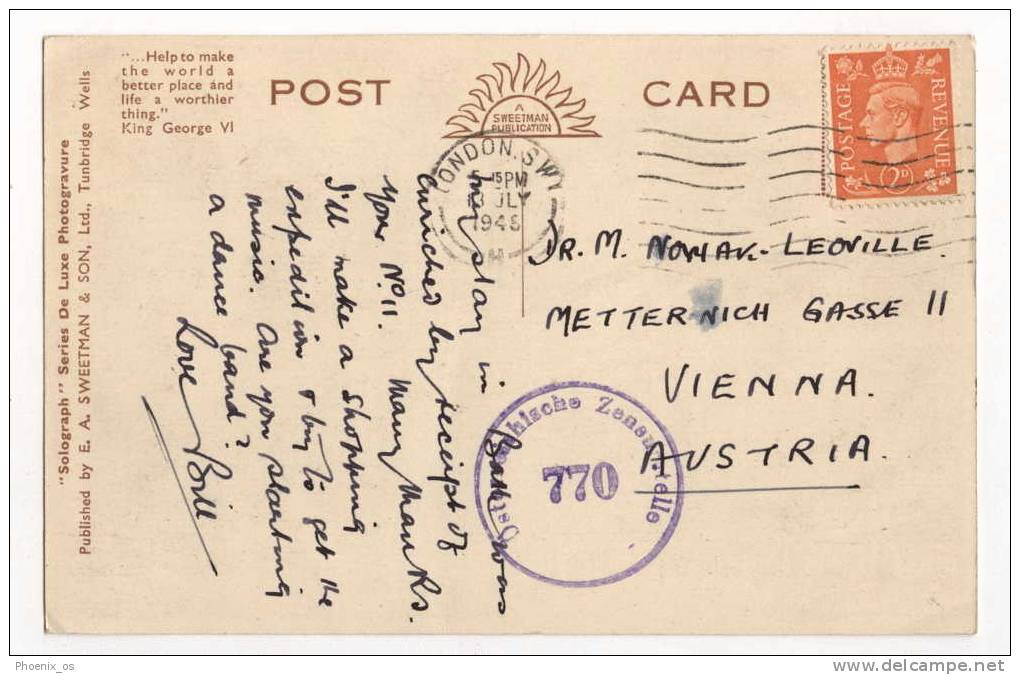 "...Help to make
the world a
better place and
life a worthier
thing."
King George VI
POST CARD
A
SWEETMAN
PUBLICATION
"Solograph" Series De Luxe Photogravure
Published by E. A. SWEETMAN & SON, Ltd., Tunbridge Wells
POSTAGE
REVENUE
2D
LONDON. S.W.1
15 PM
JLY
1948
my stay in Bath was
enriched by receipt of
your No 11. Many thanks.
I'll make a shopping
expedition & try to get the
music. Are you starting
a dance band?
Love Bill
DR. M. NOWAK-LEOVILLE.
METTERNICH GASSE 11
VIENNA.
AUSTRIA.
Österreichische Zensurstelle
770
Phoenix_os
delcampe.net